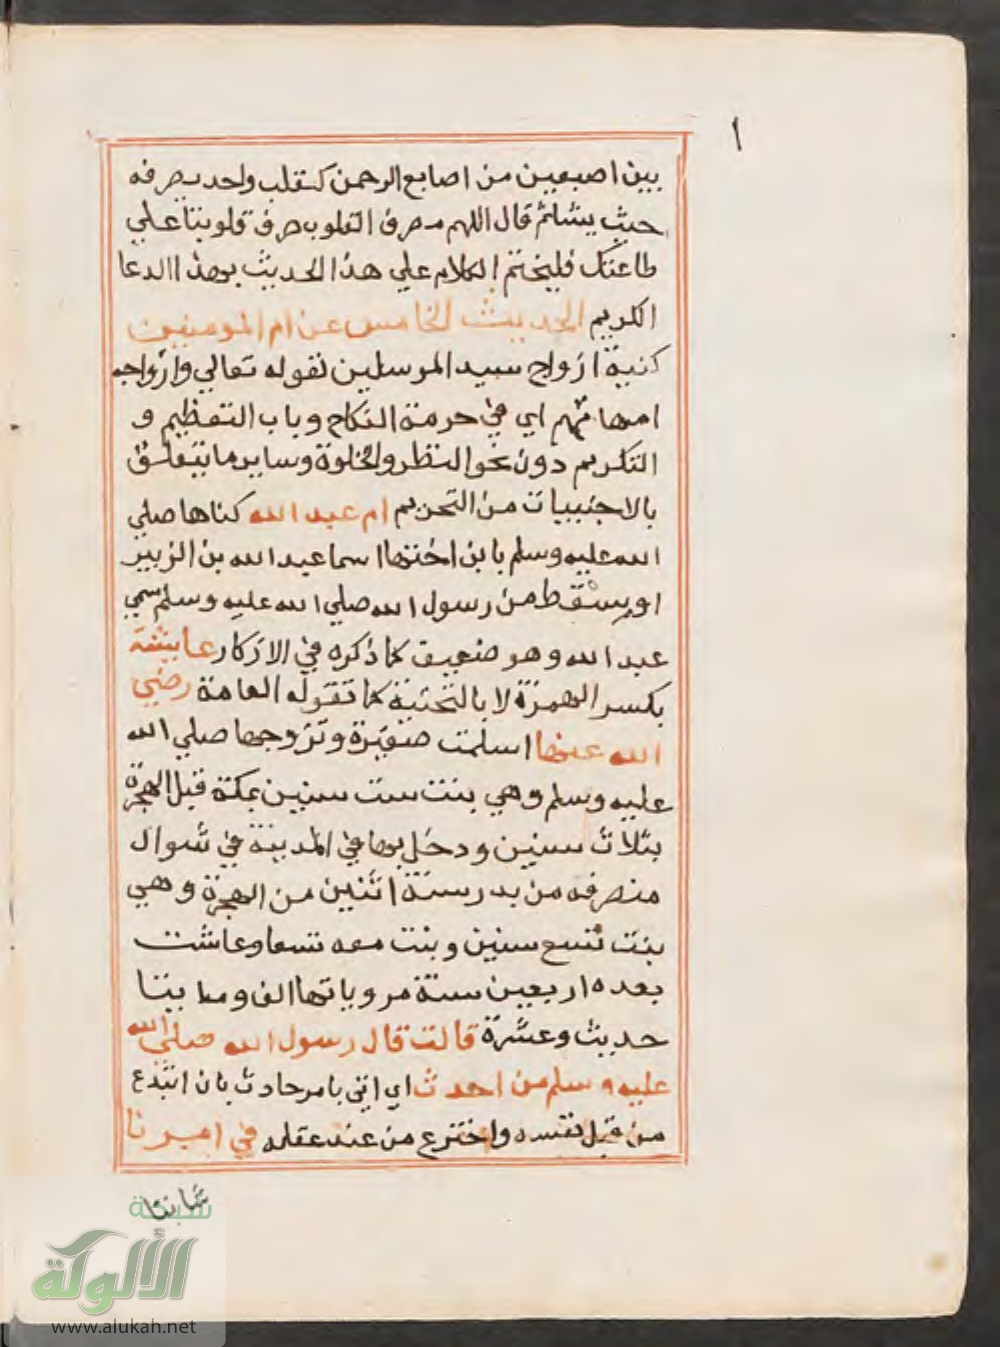 ١
بين اصبعين من اصابع الرحمن كقلب واحد يصرفه
حيث يشاثم قال اللهم مصرف القلوب صرف قلوبنا علي
طاعتك فليختم الكلام علي هذا الحديث بهذا الدعا
الكريم الحديث الخامس عن ام المومنين
كنية ازواج سيد المرسلين لقوله تعالي وازواجه
امهاتهم اي في حرمة النكاح وباب التعظيم و
التكريم دون نحو النظر والخلوة وساير ما يتعلق
بالاجنبيات من التحريم ام عبد الله كناها صلي
الله عليه وسلم بابن اختها اسما عبد الله بن الزبير
او بسقط من رسول الله صلي الله عليه وسلم سمي
عبد الله وهو ضعيف كما ذكره في الاذكار عايشة
بكسر الهمزة لا بالتحتية كما تقوله العامة رضي
الله عنها اسلمت صغيرة وتزوجها صلي الله
عليه وسلم وهي بنت ست سنين بمكة قبل الهجرة
بثلاث سنين ودخل بها في المدينة في شوال
منصرفه من بدر سنة اثنين من الهجرة وهي
بنت تسع سنين وبنت معه تسعا وعاشت
بعده اربعين سنة مروياتها الف وما يتا
حديث وعشرة قالت قال رسول الله صلي الله
عليه وسلم من احدث اي اتي بامر حادث بان ابتدع
من قبل نفسه واخترع من عند عقله في امرنا
شاننا
شبكة
الألوكة
www.alukah.net